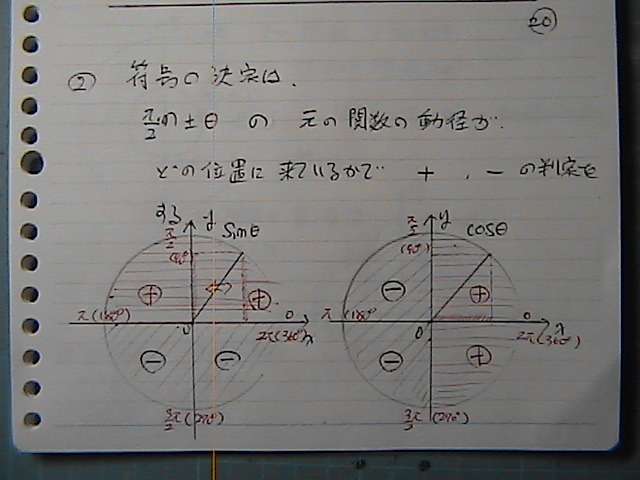 20
② 符号の決定は、
π/2 n ± θ の 元の関数の動径が、
どの位置に来ているかで +、− の判定を
する
y sinθ
π/2 (90°)
⊕ ⊕
π (180°) 0 0 2π (360°) x
⊖ ⊖
3/2π (270°)
y cosθ
π/2 (90°)
⊖ ⊕
π (180°) 0 0 2π (360°) x
⊖ ⊕
3/2π (270°)